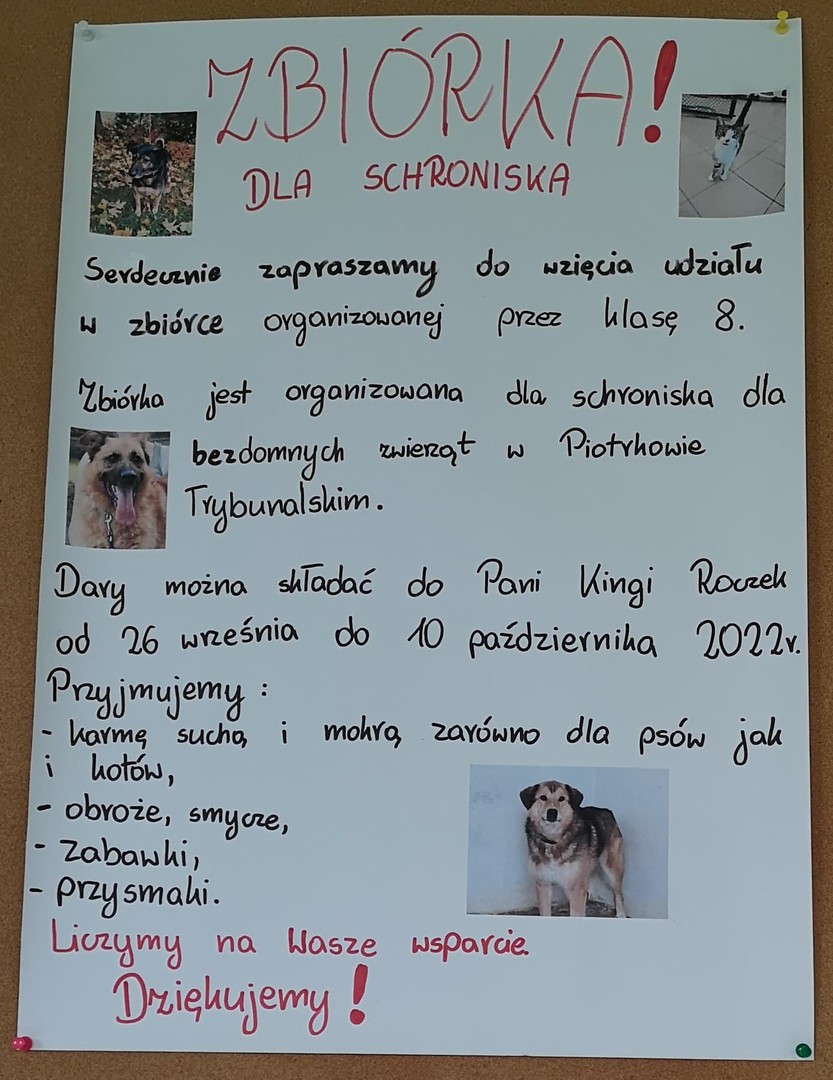 ZBIÓRKA!
DLA SCHRONISKA
Serdecznie zapraszamy do wzięcia udziału
w zbiórce organizowanej przez klasę 8.
Zbiórka jest organizowana dla schroniska dla
bezdomnych zwierząt w Piotrkowie
Trybunalskim.
Dary można składać do Pani Kingi Roczek
od 26 września do 10 października 2022r.
Przyjmujemy:
- karmę suchą i mokrą zarówno dla psów jak
i kotów,
- obroże, smycze,
- zabawki,
- przysmaki.
Liczymy na Wasze wsparcie.
Dziękujemy!